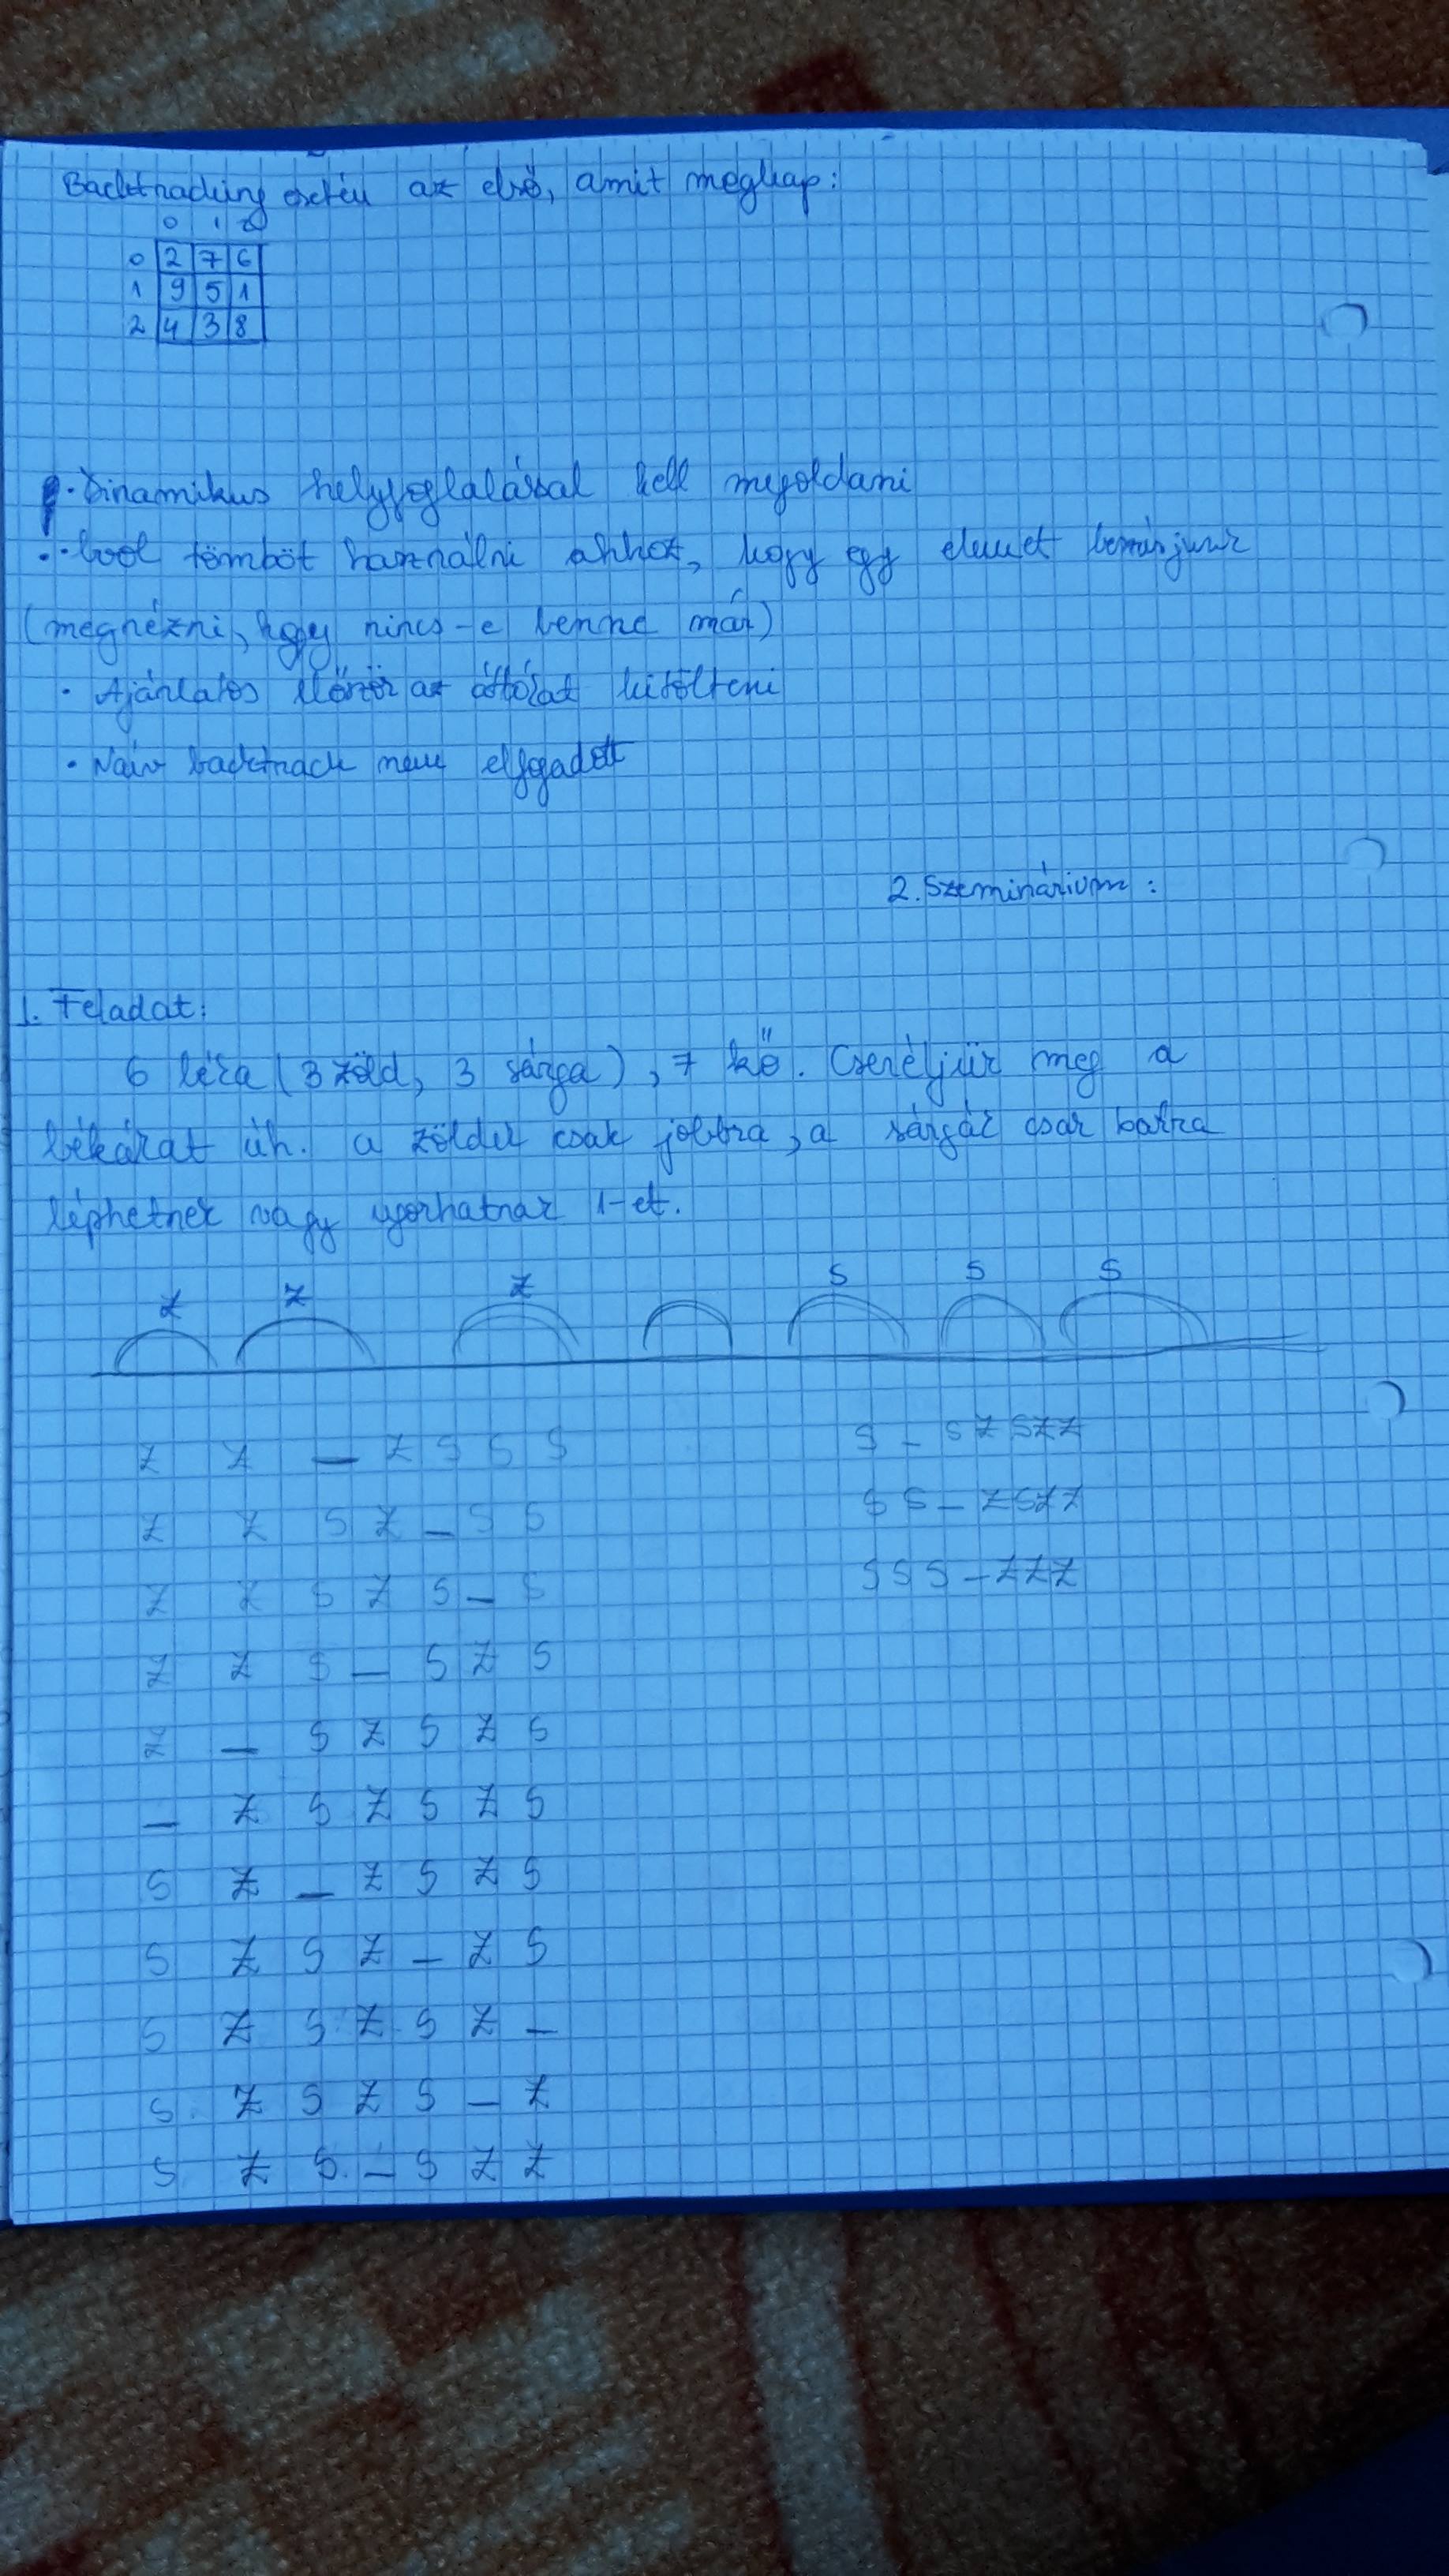 Backtracking esetén az első, amit megkap:
0 1 2
0 2 7 6
1 9 5 1
2 4 3 8
· Dinamikus helyfoglalással kell megoldani
· bool tömböt használni ahhoz, hogy egy elemet berakjunk
(megnézni, hogy nincs-e benne már)
· Ajánlatos először az átlókat kitölteni
· Naiv backtrack nem elfogadott
2. Szeminárium:
1. Feladat:
6 béka (3 zöld, 3 sárga), 7 kő. Cseréljük meg a
békákat úh. a zöldek csak jobbra, a sárgák csak balra
léphetnek vagy ugorhatnak 1-et.
Z Z Z S S S
Z Z _ Z S S S
Z Z S Z _ S S
Z Z S Z S _ S
Z Z S _ S Z S
Z _ S Z S Z S
_ Z S Z S Z S
S Z _ Z S Z S
S Z S Z _ Z S
S Z S Z S Z _
S Z S Z S _ Z
S Z S _ S Z Z
S _ S Z S Z Z
S S _ Z S Z Z
S S S _ Z Z Z